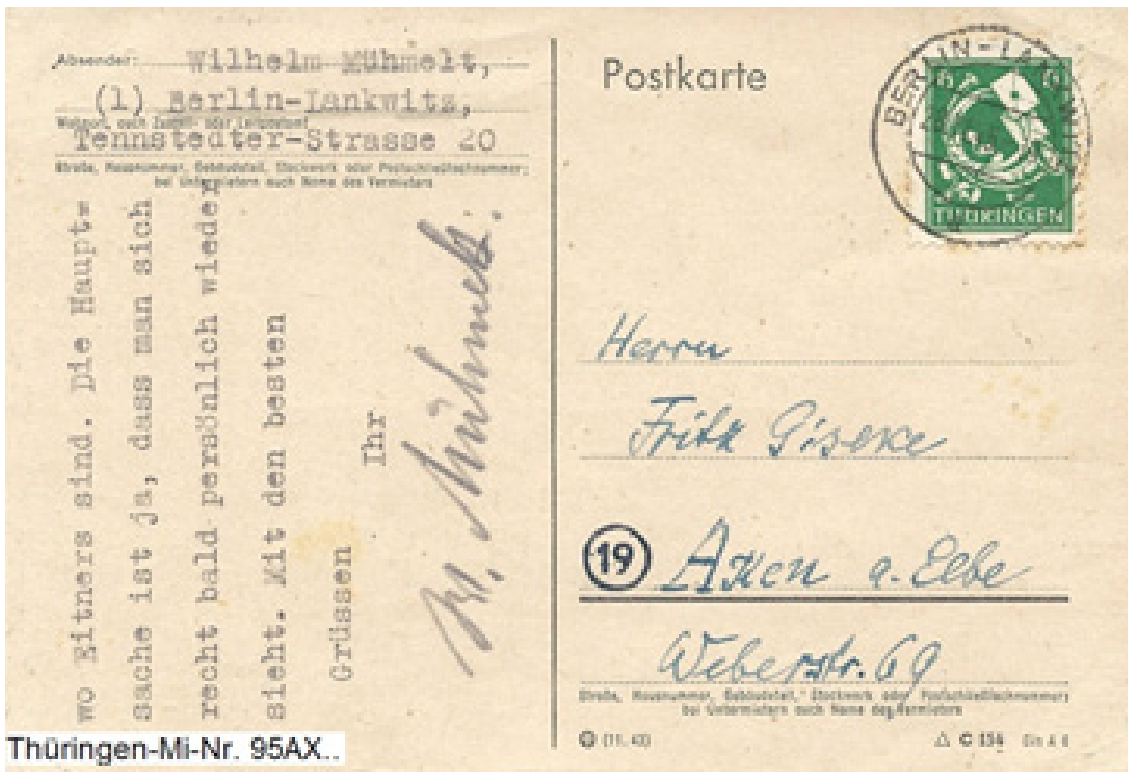 Absender: Wilhelm Mühmelt,
(1) Berlin-Lankwitz,
Wohnort, auch Zustell- oder Leitpostamt
Tennstedter-Strasse 20
Straße, Hausnummer, Gebäudeteil, Stockwerk oder Postschließfachnummer;
bei Untermietern auch Name des Vermieters
wo Eitners sind. Die Haupt=
sache ist ja, dass man sich
recht bald persönlich wieder
sieht. Mit den besten
Grüssen
Ihr
W. Mühmelt.
Postkarte
BERLIN-LANKWITZ
6 6
THÜRINGEN
Herrn
Fritz Giseke
19 Aken a. Elbe
Weberstr. 69
Straße, Hausnummer, Gebäudeteil, Stockwerk oder Postschließfachnummer;
bei Untermietern auch Name des Vermieters
(11. 43)
C 154 Din A 6
Thüringen-Mi-Nr. 95AX..